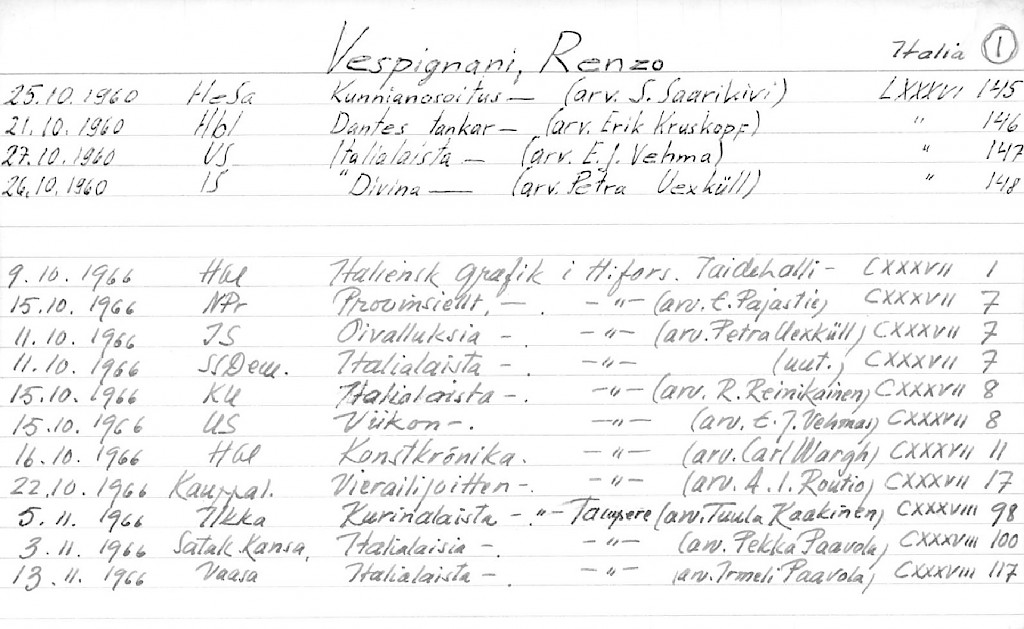 Vespignani, Renzo Italia 1
25.10.1960 HeSa Kunnianosoitus — (arv. S. Saarikivi) LXXXVI 145
21.10.1960 Hbl Dantes tankar — (arv. Erik Kruskopf) " 146
27.10.1960 US Italialaista — (arv. E.J. Vehma) " 147
26.10.1960 IS "Divina — (arv. Petra Uexküll) " 148
9.10.1966 Hbl Italiensk grafik i H:fors. Taidehalli - CXXXVII 1
15.10.1966 NPr , - -"- (arv. E. Pajastie) CXXXVII 7
11.10.1966 IS Oivalluksia - -"- (arv. Petra Uexküll) CXXXVII 7
11.10.1966 SSDem. Italialaista - -"- (uut.) CXXXVII 7
15.10.1966 KU Italialaista -. -"- (arv. R. Reinikainen) CXXXVII 8
15.10.1966 US Viikon -. -"- (arv. E.J. Vehmas) CXXXVII 8
16.10.1966 Hbl Konstkrönika. -"- (arv. Carl Wargh) CXXXVII 11
22.10.1966 Kauppal. Vierailijoitten -. -"- (arv. A.I. Routio) CXXXVII 17
5.11.1966 Ilkka Kurinalaista - -"- Tampere (arv. Tuula Kaakinen) CXXXVIII 98
3.11.1966 Satak.Kansa, Italialaisia -. -"- (arv. Pekka Paavola) CXXXVIII 100
13.11.1966 Vaasa Italialaista -. -"- (arv. Irmeli Paavola) CXXXVIII 117